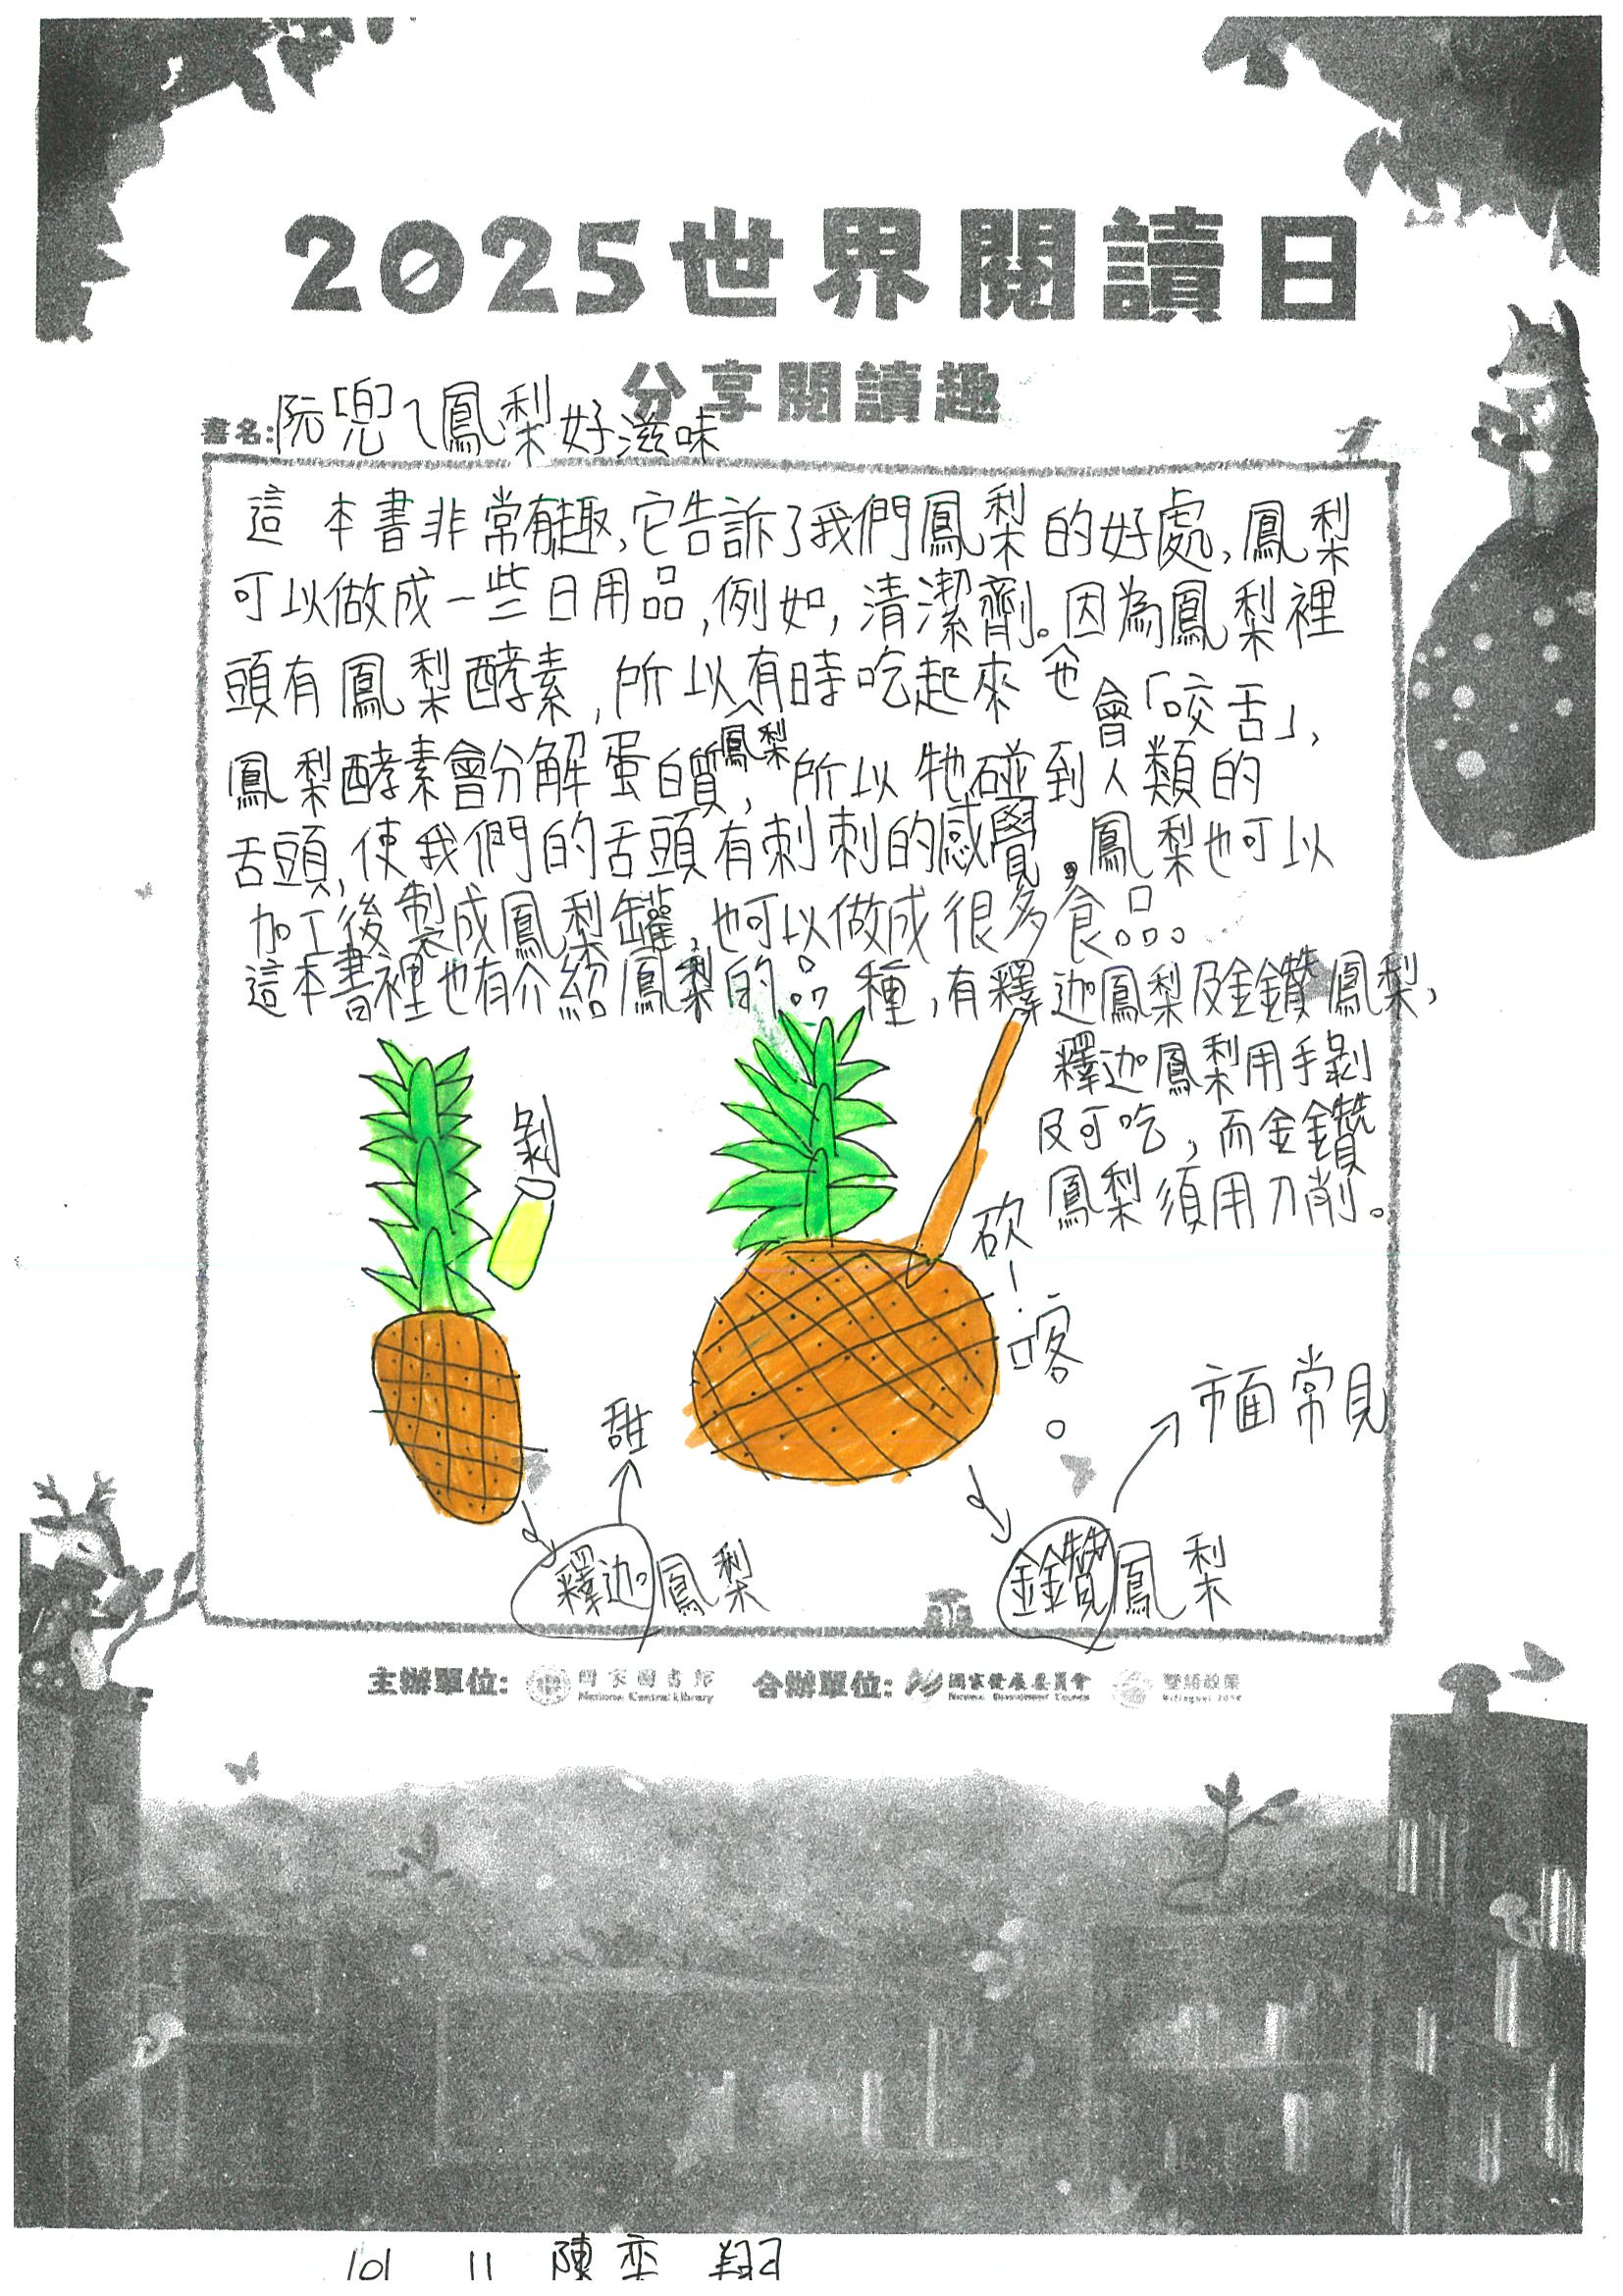 2025世界閱讀日
分享閱讀趣
書名:阮兜ㄟ鳳梨好滋味
這本書非常有趣,它告訴了我們鳳梨的好處,鳳梨
可以做成一些日用品,例如,清潔劑。因為鳳梨裡
頭有鳳梨酵素,所以有時吃起來也會「咬舌」,
鳳梨酵素會分解蛋白質,鳳梨所以牠碰到人類的
舌頭,使我們的舌頭有刺刺的感覺。鳳梨也可以
加工後製成鳳梨罐,也可以做成很多食品。。。
這本書裡也有介紹鳳梨的品種,有釋迦鳳梨及金鑽鳳梨,
釋迦鳳梨用手剝
及可吃,而金鑽
鳳梨須用刀削。
剝
砍!
喀。
甜
市面常見
釋迦鳳梨
金鑽鳳梨
主辦單位: 國家圖書館 National Central Library 合辦單位: 國家發展委員會 National Development Council 雙語政策 Bilingual 2030
101 11 陳奕翔